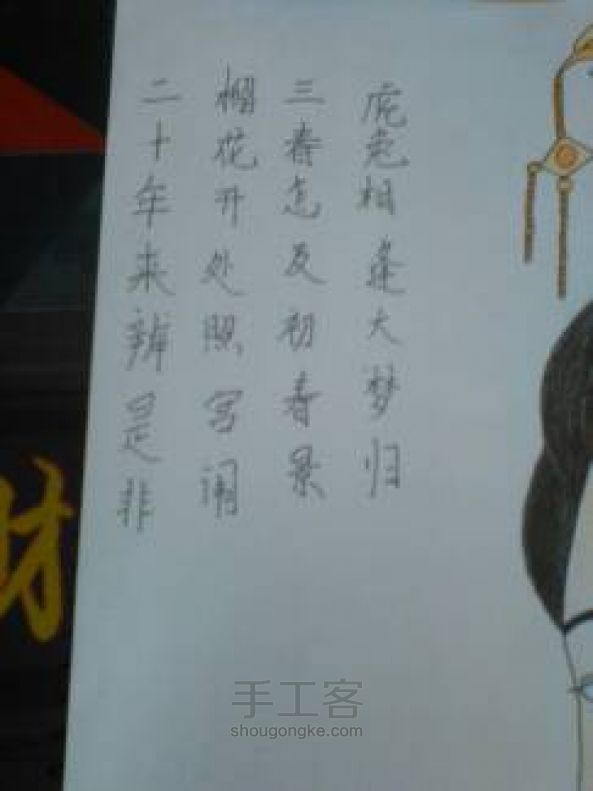 二十年来辨是非
榴花开处照宫闱
三春怎及初春景
虎兔相逢大梦归
财
手工客
shougongke.com